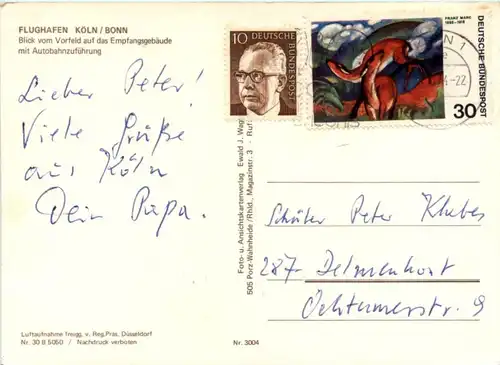 FLUGHAFEN KÖLN/BONN
Blick vom Vorfeld auf das Empfangsgebäude
mit Autobahnzuführung
Lieber Peter!
Viele Grüße
aus Köln
Dein Papa.
Luftaufnahme freigg. v. Reg.Präs. Düsseldorf
Nr. 30 B 5050 / Nachdruck verboten
Foto- u. Ansichtskartenverlag Ewald J. Wag
505 Porz-Wahnheide/Rhld., Magazinstr. 3 · Ruf:
Nr. 3004
10
DEUTSCHE
BUNDESPOST
FRANZ MARC
DEUTSCHE BUNDESPOST
30
N 1
-22
Schüler Peter Klebes
287- Delmenhorst
Ochtumerstr. 9